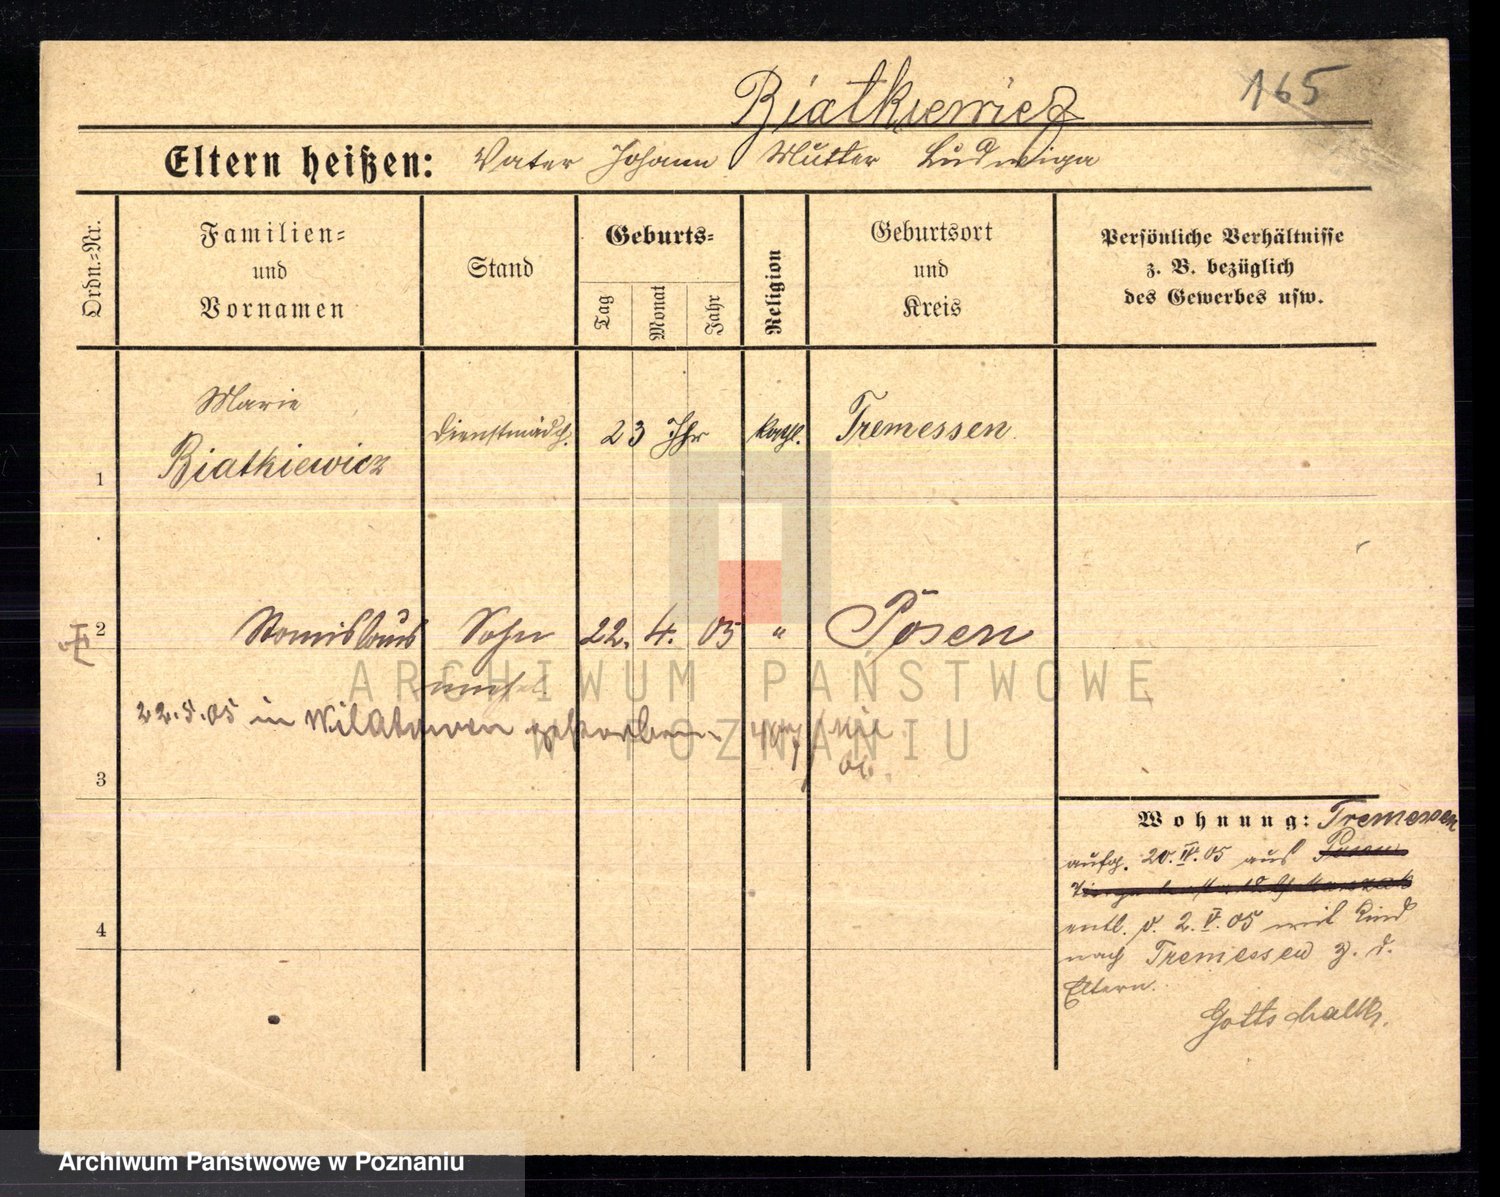 165
Biatkiewicz
Eltern heißen: Vater Johann Mutter Ludwiga
Ordn.-Nr.
Familien- und Vornamen
Stand
Geburts-
Tag Monat Jahr
Religion
Geburtsort und Kreis
Persönliche Verhältnisse
z. B. bezüglich
des Gewerbes usw.
1 Marie Biatkiewicz Dienstmädch. 23 Jhr kath. Tremessen
2 Stanislaus Sohn 22. 4. 05 " Posen
unehel.
22.5.05 in Wilatowen gestorben
3
4
Wohnung: Tremessen
aufg. 20.IV.05 aus Posen
entl. d. 2.V.05 mit Kind
nach Tremessen z. d.
Eltern.
Gottschalk.
ARCHIWUM PAŃSTWOWE
W POZNANIU
Archiwum Państwowe w Poznaniu